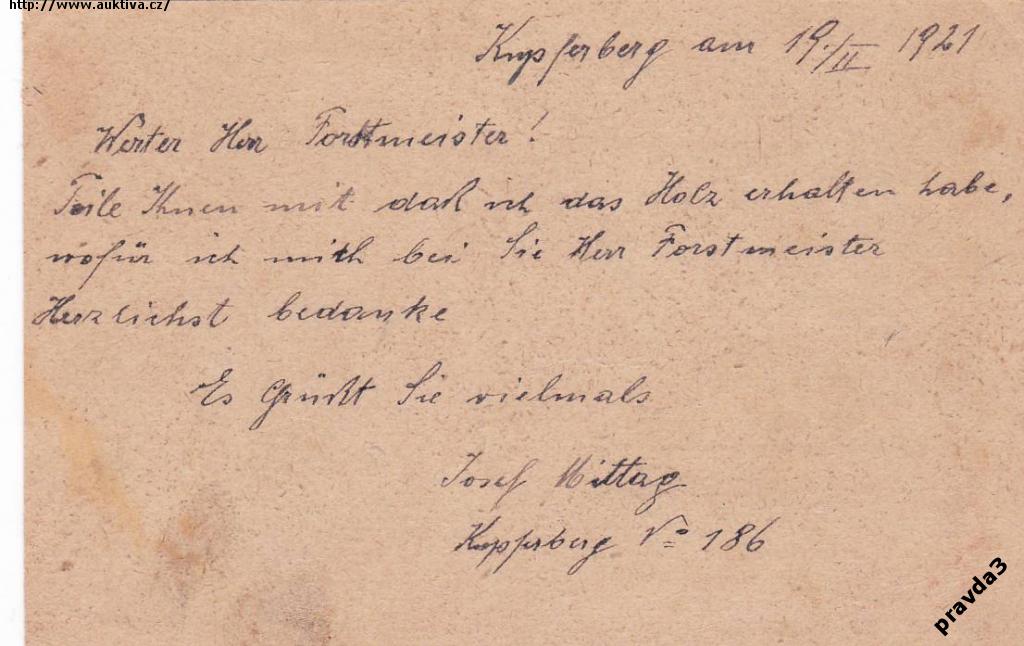 http://www.auktiva.cz/
Kupferberg am 19./II 1921
Werter Herr Forstmeister!
Teile Ihnen mit daß ich das Holz erhalten habe,
wofür ich mich bei Sie Herr Forstmeister
Herzlichst bedanke
Es Grüßt Sie vielmals
Josef Mittag
Kupferberg No 186
pravda3